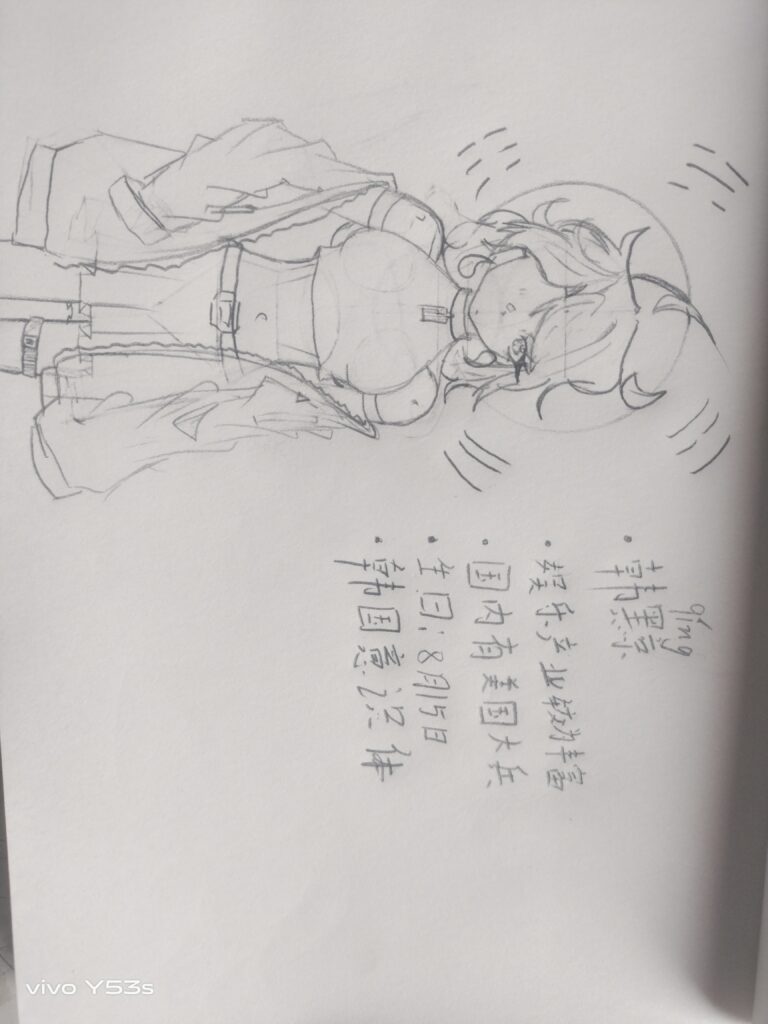 qíng
• 韩黥
• 娱乐产业较为丰富
• 国内有美国大兵
• 生日：8月15日
• 韩国意识体
vivo Y53s